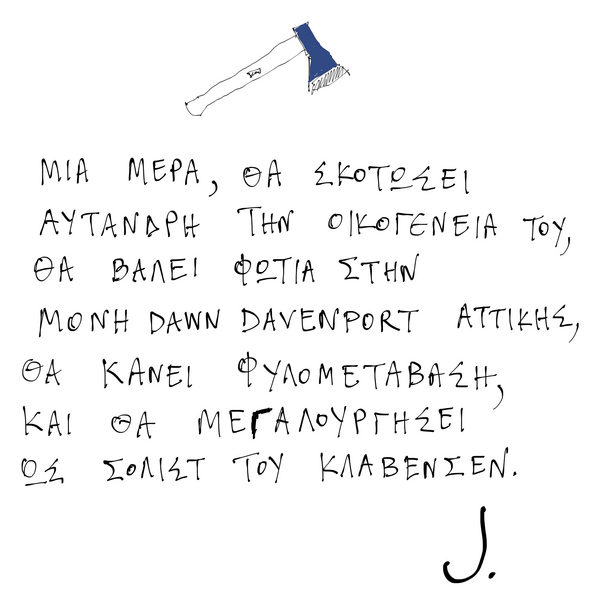 ΜΙΑ ΜΕΡΑ, ΘΑ ΣΚΟΤΩΣΕΙ
ΑΥΤΑΝΔΡΗ ΤΗΝ ΟΙΚΟΓΕΝΕΙΑ ΤΟΥ,
ΘΑ ΒΑΛΕΙ ΦΩΤΙΑ ΣΤΗΝ
ΜΟΝΗ DAWN DAVENPORT ΑΤΤΙΚΗΣ,
ΘΑ ΚΑΝΕΙ ΦΥΛΟΜΕΤΑΒΑΣΗ,
ΚΑΙ ΘΑ ΜΕΓΑΛΟΥΡΓΗΣΕΙ
ΩΣ ΣΟΛΙΣΤ ΤΟΥ ΚΛΑΒΕΝΣΕΝ.
J.